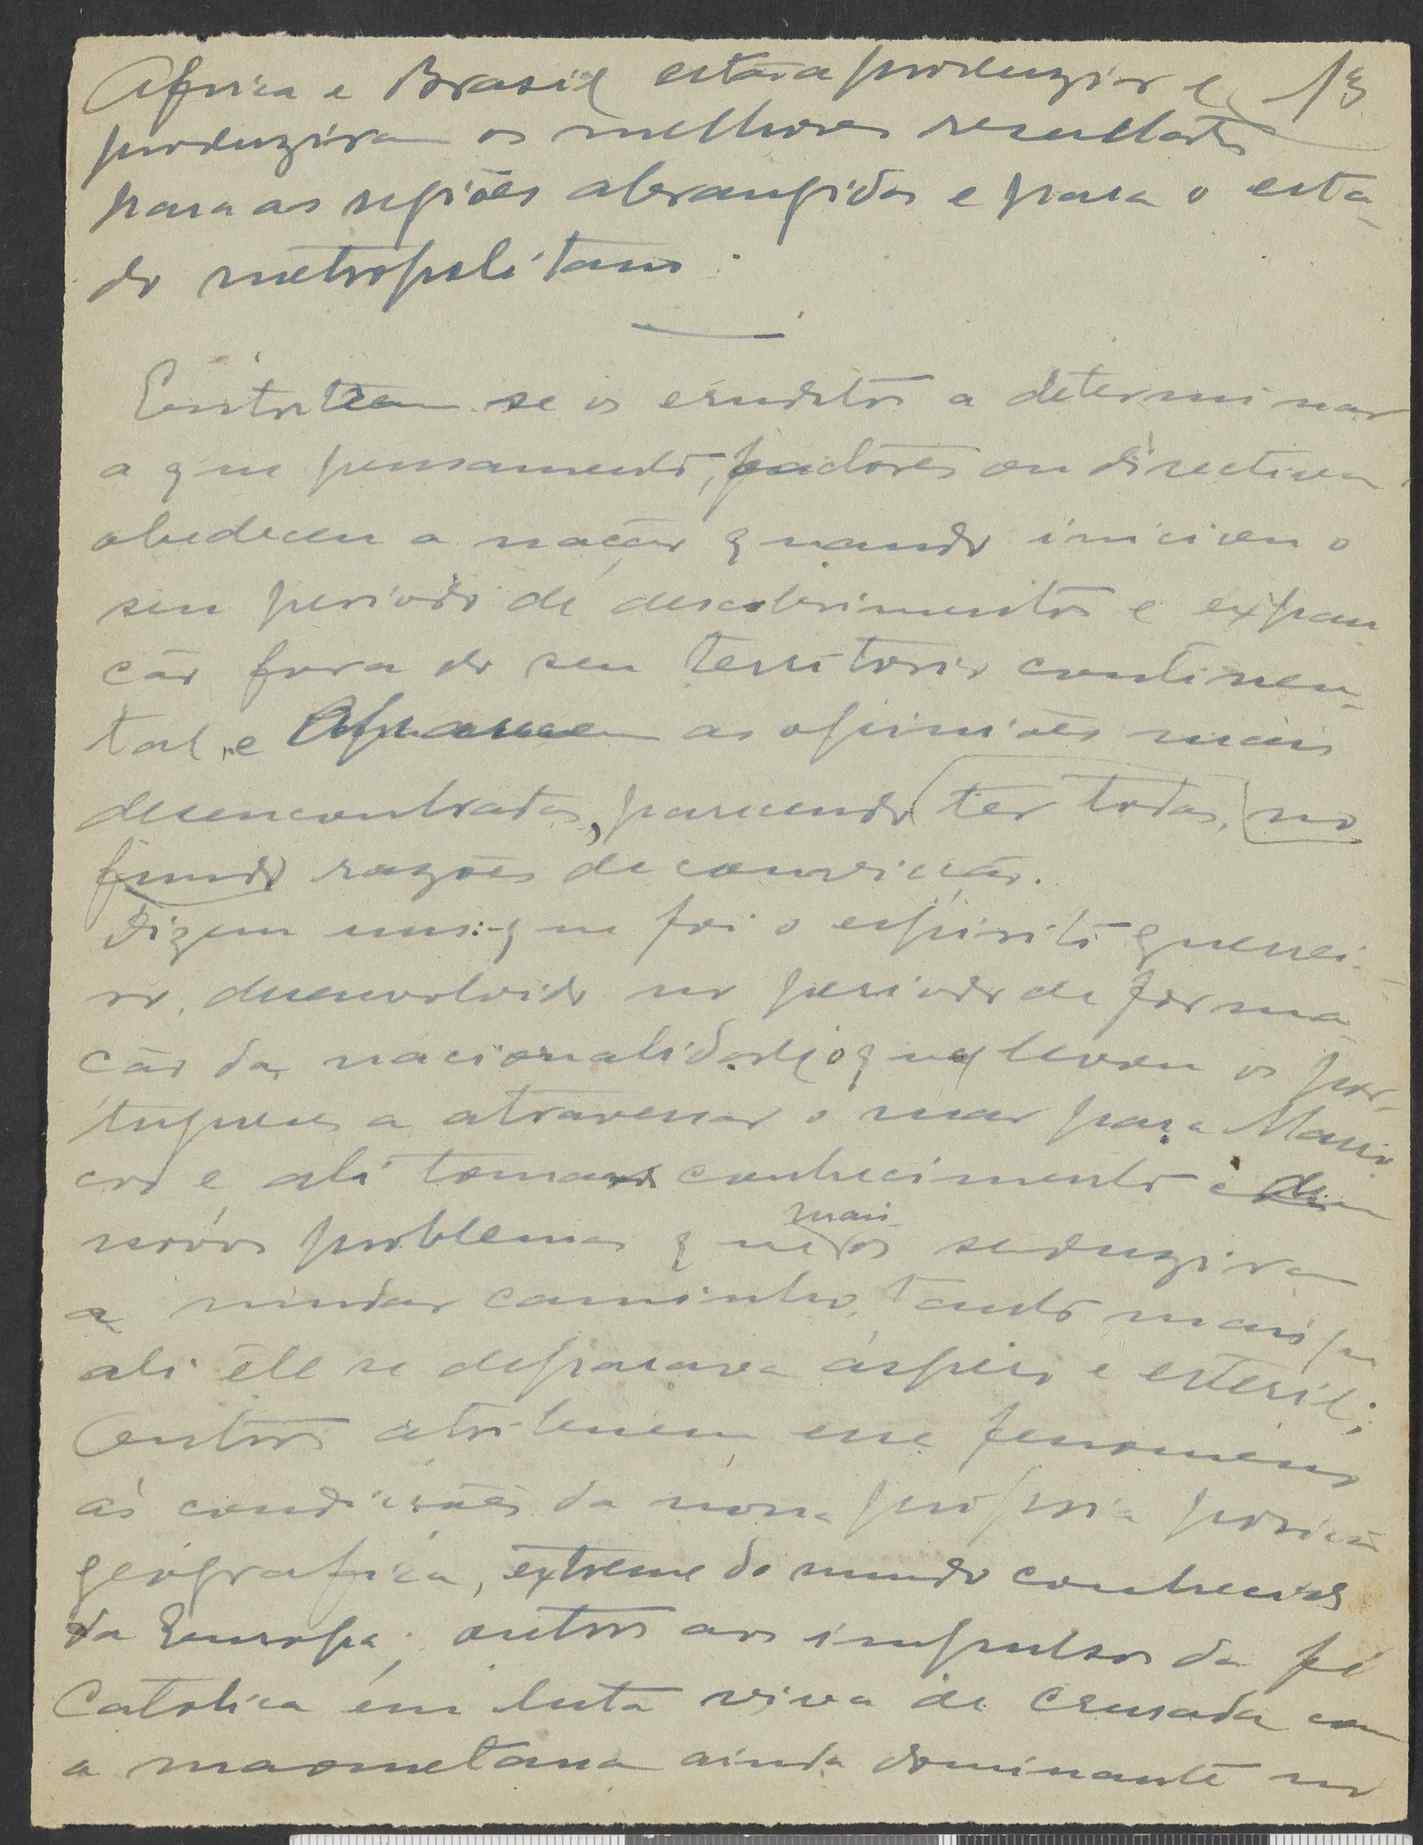 Africa e Brasil estão a produzir e 13
produziram os melhores resultados
para as regiões abrangidas e para o esta-
do metropolitano.
se os eruditos a determinar
a que pensamento, factores ou directivas
obedeceu a nação quando iniciou o
seu periodo de descobrimentos e expan
ção fora do seu territorio continen-
tal, e as opiniões mais
desencontradas, parecendo ter todas, no
fundo razões de convicção.
Dizem uns:-que foi o espirito guerrei-
ro, desenvolvido no periodo de forma
ção da nacionalidade, o que levou os por-
tugueses a atravessar o mar para Marro
cos e ali tomar conhecimento de
novos problemas que mais os seduziram
a mudar caminho, tanto mais que
ali êle se deparava áspero e esteril;
Outros atribuem esse fenomeno
ás condições da nossa propria posição
geografica, extreme do mundo conhecido
da Europa; outros aos impulsos da fé
Catolica em luta viva de Crusada com
a maometana ainda dominante no